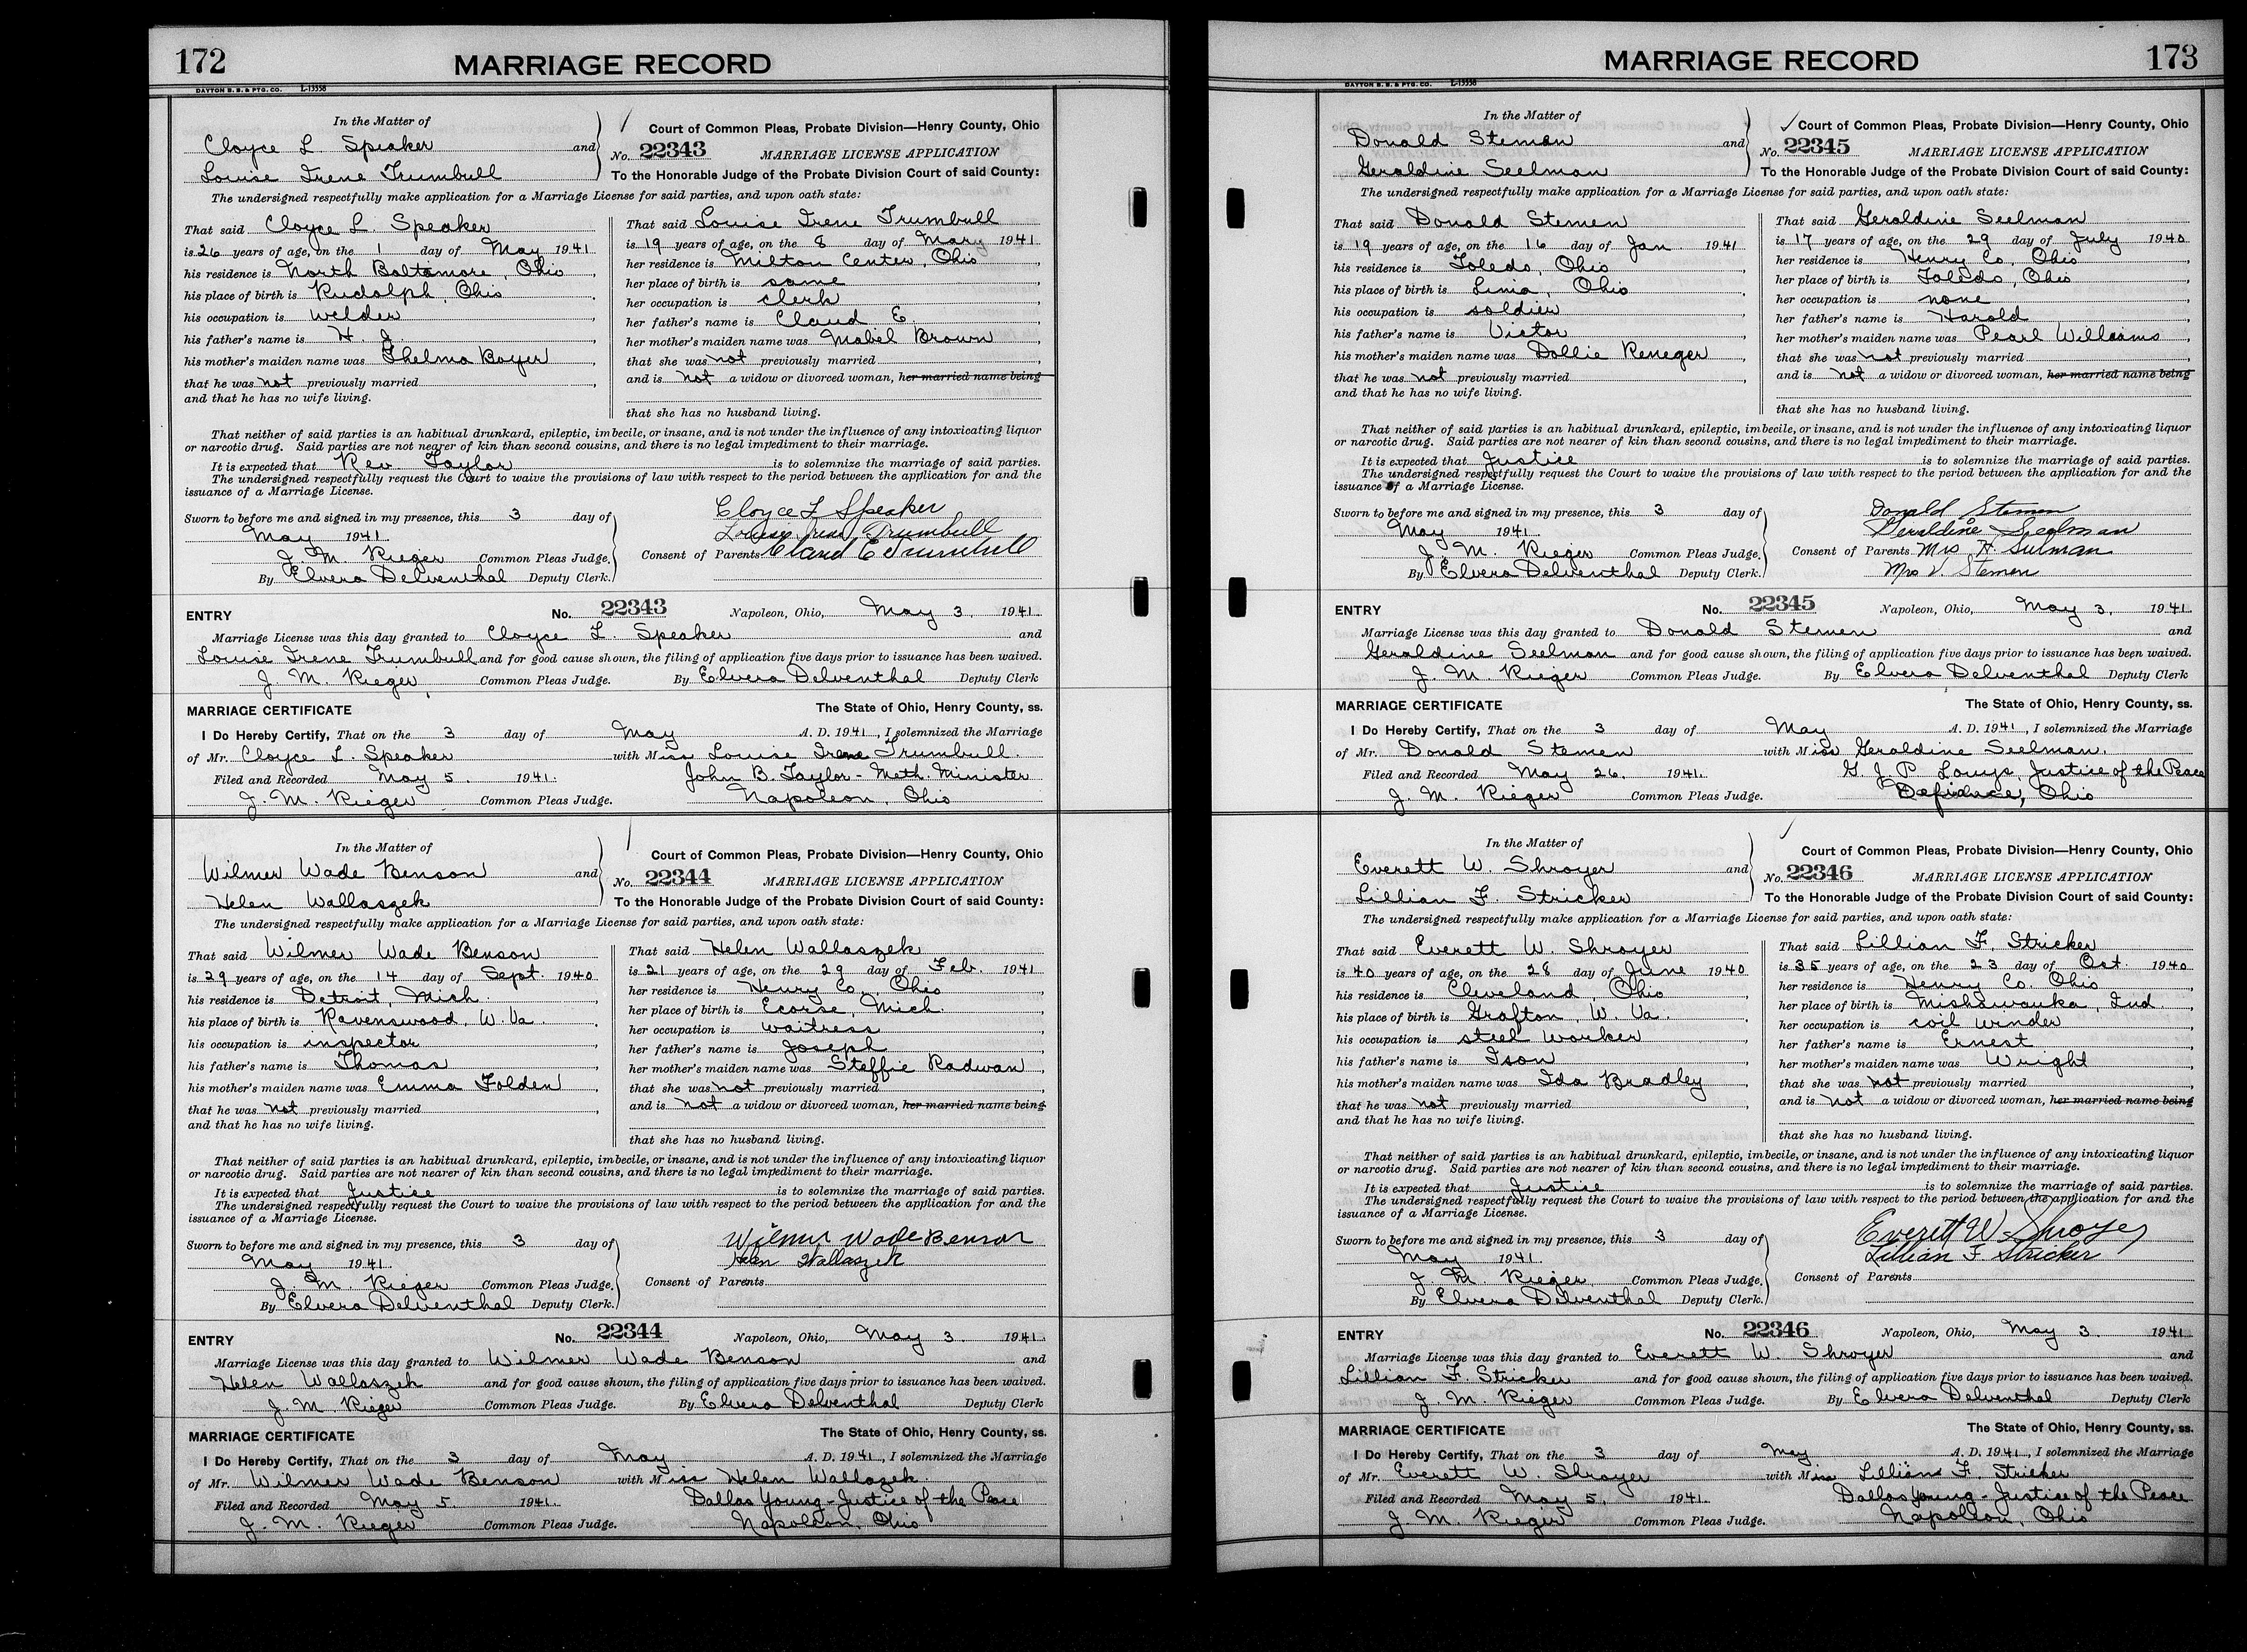 172
MARRIAGE RECORD
DAYTON B. B. & PTG. CO. L-13558
In the Matter of
Cloyce L Speaker and
Louise Irene Trumbull
Court of Common Pleas, Probate Division—Henry County, Ohio
No. 22343 MARRIAGE LICENSE APPLICATION
To the Honorable Judge of the Probate Division Court of said County:
The undersigned respectfully make application for a Marriage License for said parties, and upon oath state:
That said Cloyce L. Speaker
is 26 years of age, on the 1 day of May 1941
his residence is North Baltamore, Ohio,
his place of birth is Rudolph, Ohio,
his occupation is welder,
his father's name is H. J.,
his mother's maiden name was Thelma Boyer,
that he was not previously married,
and that he has no wife living.
That said Louise Irene Trumbull
is 19 years of age, on the 8 day of Mary 1941
her residence is Milton Center, Ohio,
her place of birth is same,
her occupation is clerk,
her father's name is Claud E.,
her mother's maiden name was Mabel Brown,
that she was not previously married,
and is not a widow or divorced woman, her married name being
that she has no husband living.
That neither of said parties is an habitual drunkard, epileptic, imbecile, or insane, and is not under the influence of any intoxicating liquor
or narcotic drug. Said parties are not nearer of kin than second cousins, and there is no legal impediment to their marriage.
It is expected that Rev. Taylor is to solemnize the marriage of said parties.
The undersigned respectfully request the Court to waive the provisions of law with respect to the period between the application for and the
issuance of a Marriage License.
Sworn to before me and signed in my presence, this 3 day of
May 1941.
J. M. Rieger Common Pleas Judge.
By Elvera Delventhal Deputy Clerk.
Cloyce L Speaker
Louise Irene Trumbull
Consent of Parents Claud E Trumbull
ENTRY No. 22343 Napoleon, Ohio, May 3, 1941.
Marriage License was this day granted to Cloyce L. Speaker and
Louise Irene Trumbull and for good cause shown, the filing of application five days prior to issuance has been waived.
J. M. Rieger, Common Pleas Judge. By Elvera Delventhal Deputy Clerk
MARRIAGE CERTIFICATE The State of Ohio, Henry County, ss.
I Do Hereby Certify, That on the 3 day of May A. D. 1941, I solemnized the Marriage
of Mr. Cloyce L. Speaker with Miss Louise Irene Trumbull.
Filed and Recorded May 5. 1941. John B. Taylor - Meth. Minister
J. M. Rieger Common Pleas Judge. Napoleon, Ohio
In the Matter of
Wilmer Wade Benson and
Helen Wallaszek
Court of Common Pleas, Probate Division—Henry County, Ohio
No. 22344 MARRIAGE LICENSE APPLICATION
To the Honorable Judge of the Probate Division Court of said County:
The undersigned respectfully make application for a Marriage License for said parties, and upon oath state:
That said Wilmer Wade Benson
is 29 years of age, on the 14 day of Sept. 1940
his residence is Detroit, Mich.,
his place of birth is Ravenswood, W. Va.,
his occupation is inspector,
his father's name is Thomas,
his mother's maiden name was Emma Folden,
that he was not previously married,
and that he has no wife living.
That said Helen Wallaszek
is 21 years of age, on the 29 day of Feb. 1941
her residence is Henry Co., Ohio,
her place of birth is Ecorse, Mich.,
her occupation is waitress,
her father's name is Joseph,
her mother's maiden name was Steffie Radwan,
that she was not previously married,
and is not a widow or divorced woman, her married name being
that she has no husband living.
That neither of said parties is an habitual drunkard, epileptic, imbecile, or insane, and is not under the influence of any intoxicating liquor
or narcotic drug. Said parties are not nearer of kin than second cousins, and there is no legal impediment to their marriage.
It is expected that Justice is to solemnize the marriage of said parties.
The undersigned respectfully request the Court to waive the provisions of law with respect to the period between the application for and the
issuance of a Marriage License.
Sworn to before me and signed in my presence, this 3 day of
May 1941.
J. M. Rieger Common Pleas Judge.
By Elvera Delventhal Deputy Clerk.
Wilmer Wade Benson
Helen Wallaszek
Consent of Parents
ENTRY No. 22344 Napoleon, Ohio, May 3. 1941.
Marriage License was this day granted to Wilmer Wade Benson and
Helen Wallaszek and for good cause shown, the filing of application five days prior to issuance has been waived.
J. M. Rieger Common Pleas Judge. By Elvera Delventhal Deputy Clerk
MARRIAGE CERTIFICATE The State of Ohio, Henry County, ss.
I Do Hereby Certify, That on the 3 day of May A. D. 1941, I solemnized the Marriage
of Mr. Wilmer Wade Benson with Miss Helen Wallazek.
Filed and Recorded May 5. 1941. Dallas Young - Justice of the Peace
J. M. Rieger Common Pleas Judge. Napoleon, Ohio
MARRIAGE RECORD
173
DAYTON B. B. & PTG. CO. L-13558
In the Matter of
Donald Stemen and
Geraldine Seelman
Court of Common Pleas, Probate Division—Henry County, Ohio
No. 22345 MARRIAGE LICENSE APPLICATION
To the Honorable Judge of the Probate Division Court of said County:
The undersigned respectfully make application for a Marriage License for said parties, and upon oath state:
That said Donald Stemen
is 19 years of age, on the 16 day of Jan. 1941
his residence is Toledo, Ohio,
his place of birth is Lima, Ohio,
his occupation is soldier,
his father's name is Victor,
his mother's maiden name was Dollie Reneger,
that he was not previously married,
and that he has no wife living.
That said Geraldine Seelman
is 17 years of age, on the 29 day of July 1940
her residence is Henry Co. Ohio,
her place of birth is Toledo, Ohio,
her occupation is none,
her father's name is Harold,
her mother's maiden name was Pearl Williams,
that she was not previously married,
and is not a widow or divorced woman, her married name being
that she has no husband living.
That neither of said parties is an habitual drunkard, epileptic, imbecile, or insane, and is not under the influence of any intoxicating liquor
or narcotic drug. Said parties are not nearer of kin than second cousins, and there is no legal impediment to their marriage.
It is expected that Justice is to solemnize the marriage of said parties.
The undersigned respectfully request the Court to waive the provisions of law with respect to the period between the application for and the
issuance of a Marriage License.
Sworn to before me and signed in my presence, this 3 day of
May 1941.
J. M. Rieger Common Pleas Judge.
By Elvera Delventhal Deputy Clerk.
Donald Stemen
Geraldine Seelman
Consent of Parents Mrs H. Seelman
Mrs V. Stemen
ENTRY No. 22345 Napoleon, Ohio, May 3, 1941.
Marriage License was this day granted to Donald Stemen and
Geraldine Seelman and for good cause shown, the filing of application five days prior to issuance has been waived.
J. M. Rieger Common Pleas Judge. By Elvera Delventhal Deputy Clerk
MARRIAGE CERTIFICATE The State of Ohio, Henry County, ss.
I Do Hereby Certify, That on the 3 day of May A. D. 1941, I solemnized the Marriage
of Mr. Donald Stemen with Miss Geraldine Seelman.
Filed and Recorded May 26. 1941. G. J. P. Justice of the Peace
J. M. Rieger Common Pleas Judge. Defiance, Ohio
In the Matter of
Everett W. Shroyer and
Lillian F. Stricker
Court of Common Pleas, Probate Division—Henry County, Ohio
No. 22346 MARRIAGE LICENSE APPLICATION
To the Honorable Judge of the Probate Division Court of said County:
The undersigned respectfully make application for a Marriage License for said parties, and upon oath state:
That said Everett W. Shroyer
is 40 years of age, on the 28 day of June 1940
his residence is Cleveland, Ohio,
his place of birth is Grafton, W. Va.,
his occupation is steel worker,
his father's name is Ison,
his mother's maiden name was Ida Bradley,
that he was not previously married,
and that he has no wife living.
That said Lillian F. Stricker
is 35 years of age, on the 23 day of Oct. 1940
her residence is Henry Co. Ohio,
her place of birth is Mishawauka, Ind,
her occupation is coil winder,
her father's name is Ernest,
her mother's maiden name was Wright,
that she was not previously married,
and is not a widow or divorced woman, her married name being
that she has no husband living.
That neither of said parties is an habitual drunkard, epileptic, imbecile, or insane, and is not under the influence of any intoxicating liquor
or narcotic drug. Said parties are not nearer of kin than second cousins, and there is no legal impediment to their marriage.
It is expected that Justice is to solemnize the marriage of said parties.
The undersigned respectfully request the Court to waive the provisions of law with respect to the period between the application for and the
issuance of a Marriage License.
Sworn to before me and signed in my presence, this 3 day of
May 1941.
J. M. Rieger Common Pleas Judge.
By Elvera Delventhal Deputy Clerk.
Everett W Shroyer
Lillian F. Stricker
Consent of Parents
ENTRY No. 22346 Napoleon, Ohio, May 3. 1941
Marriage License was this day granted to Everett W. Shroyer and
Lillian F. Stricker and for good cause shown, the filing of application five days prior to issuance has been waived.
J. M. Rieger Common Pleas Judge. By Elvera Delventhal Deputy Clerk
MARRIAGE CERTIFICATE The State of Ohio, Henry County, ss.
I Do Hereby Certify, That on the 3 day of May A. D. 1941, I solemnized the Marriage
of Mr. Everett W. Shroyer with Miss Lillian F. Stricker
Filed and Recorded May 5. 1941. Dallas Young - Justice of the Peace
J. M. Rieger Common Pleas Judge. Napoleon, Ohio